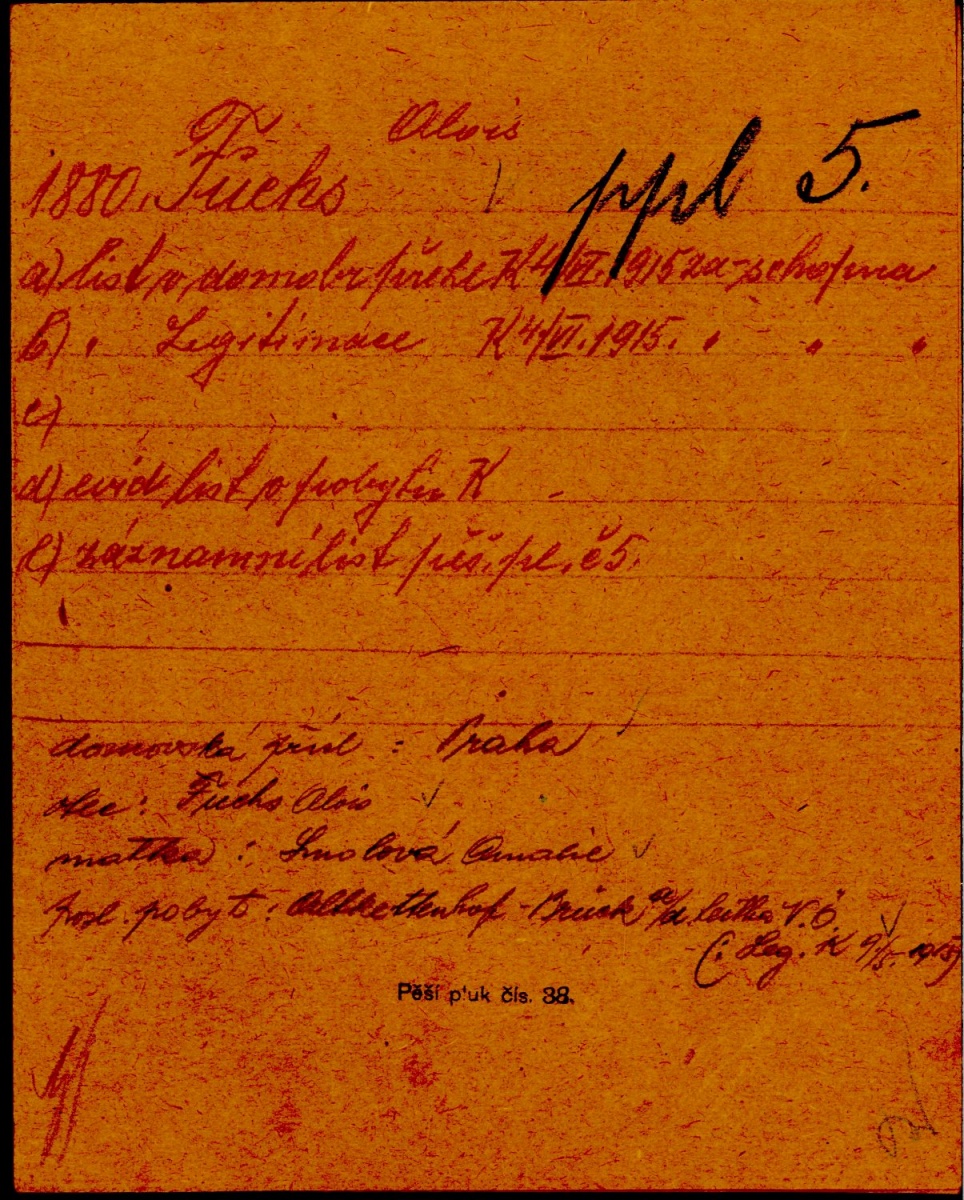 Alois
1880. Fuchs ppl 5.
a) list o domobr přehl K 4/VI. 1915 za-schopna
b) " Legitimace K 4/VI. 1915. " " "
c)
d) evid list o pobytu K -
e) záznamní list pěš. pl. č 5.
domovská přísl : Praha
otec : Fuchs Alois
matka : Smolová Amalie
posl. pobyt : Altkettenhof - Bruck a/d Leitha N. Ö.
(: Leg. K 9/5. 1915)
Pěší pluk čís. 38.